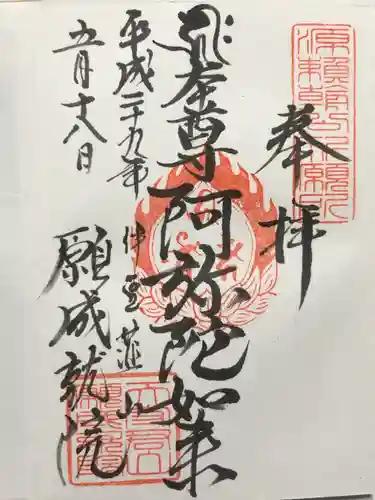 奉拝
本尊阿弥陀如来
伊豆韮山
平成二十九年
五月十八日
願成就院